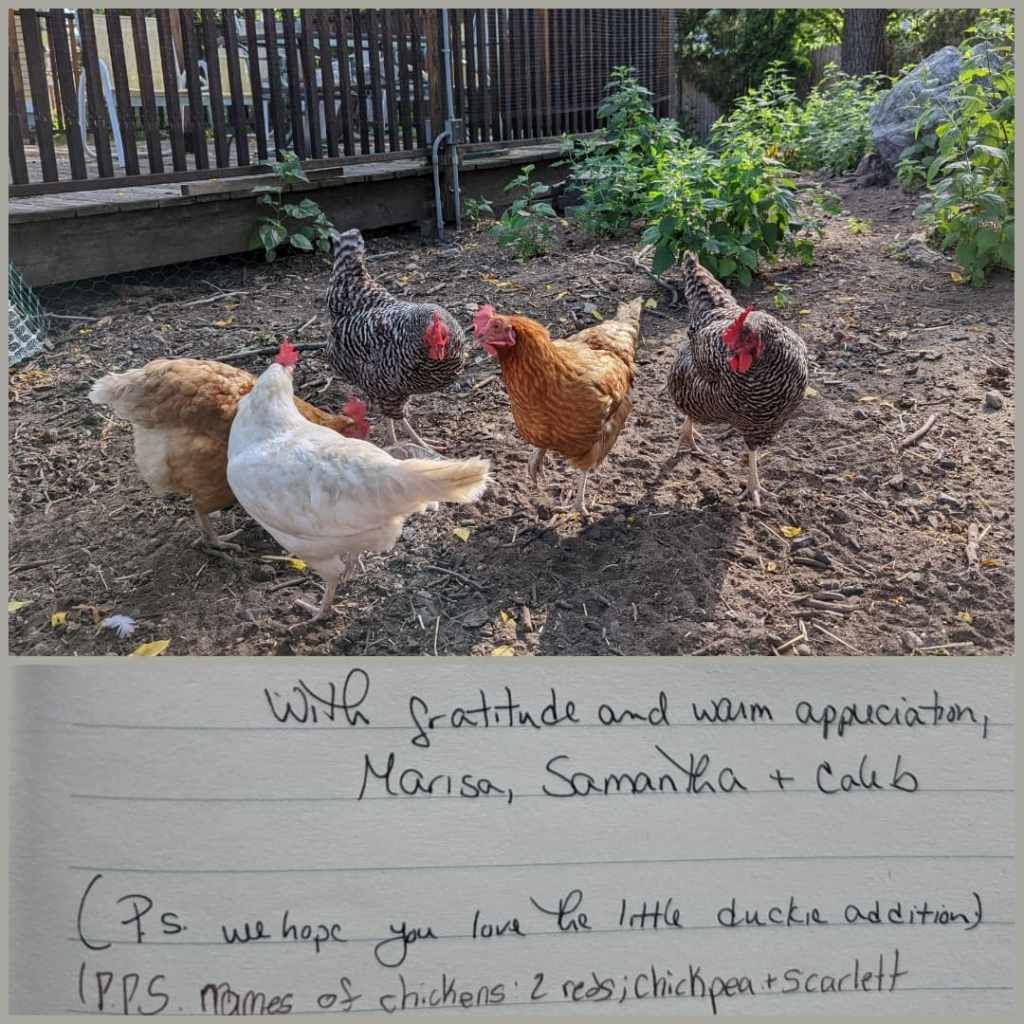 With gratitude and warm appreciation,
Marisa, Samantha + Caleb
(P.s. we hope you love the little duckie addition)
(P.P.S. names of chickens: 2 reds; chickpea + scarlett